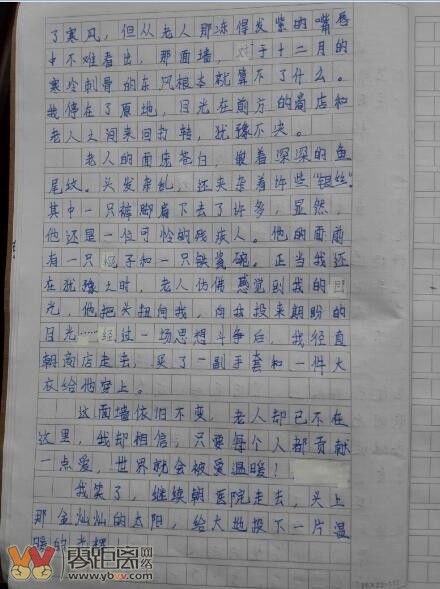 了寒风，但从老人那冻得发紫的嘴唇
中不难看出，那面墙，对于十二月的
寒冷刺骨的东风根本就算不了什么。
我停在了原地，目光在前方的商店和
老人之间来回打转，犹豫不决。
老人的面庞苍白，嵌着深深的鱼
尾纹。头发杂乱，还夹杂着许些"银丝"
其中一只裤脚扁下去了许多，显然，
他还是一位可怜的残疾人。他的面前
有一只 子和一只铁瓷碗。正当我还
在犹豫之时，老人仿佛感觉到我的目
光，他把头扭向我，向我投来期盼的
目光……经过一场思想斗争后，我径直
朝商店走去，买了一副手套和一件大
衣给他穿上。
这面墙依旧不变，老人却已不在
这里，我却相信，只要每个人都贡献
一点爱，世界就会被爱温暖！
我笑了，继续朝医院走去，头上
那金灿灿的太阳，给大地投下一片温
暖的光辉！
零距离网络
www.ybvv.com